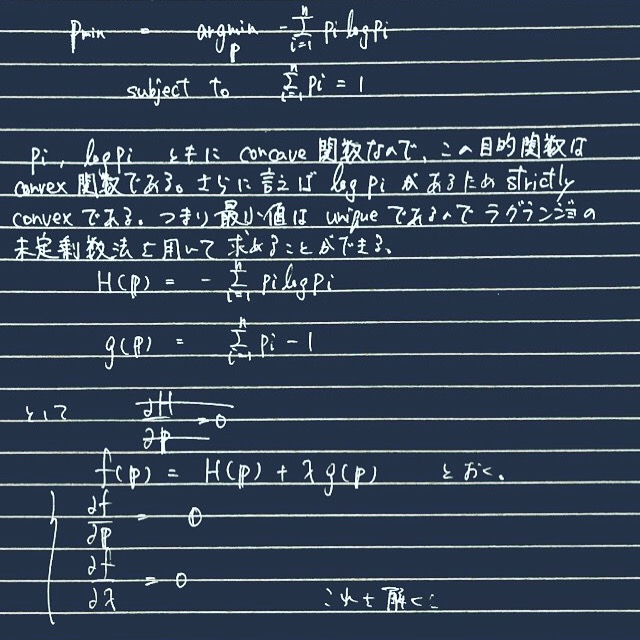 p_min = argmin_p -∑_{i=1}^{n} pi log pi
subject to ∑_{i=1}^{n} pi = 1
pi, log pi ともに concave 関数なので、この目的関数は
convex 関数である。さらに言えば log pi があるため strictly
convex である。つまり最小値は unique であるのでラグランジュの
未定乗数法を用いて求めることができる。
H(p) = - ∑_{i=1}^{n} pi log pi
g(p) = ∑_{i=1}^{n} pi - 1
として ∂H/∂p = 0
f(p) = H(p) + λ g(p) とおく。
∂f/∂p = 0
∂f/∂λ = 0
これを解くと